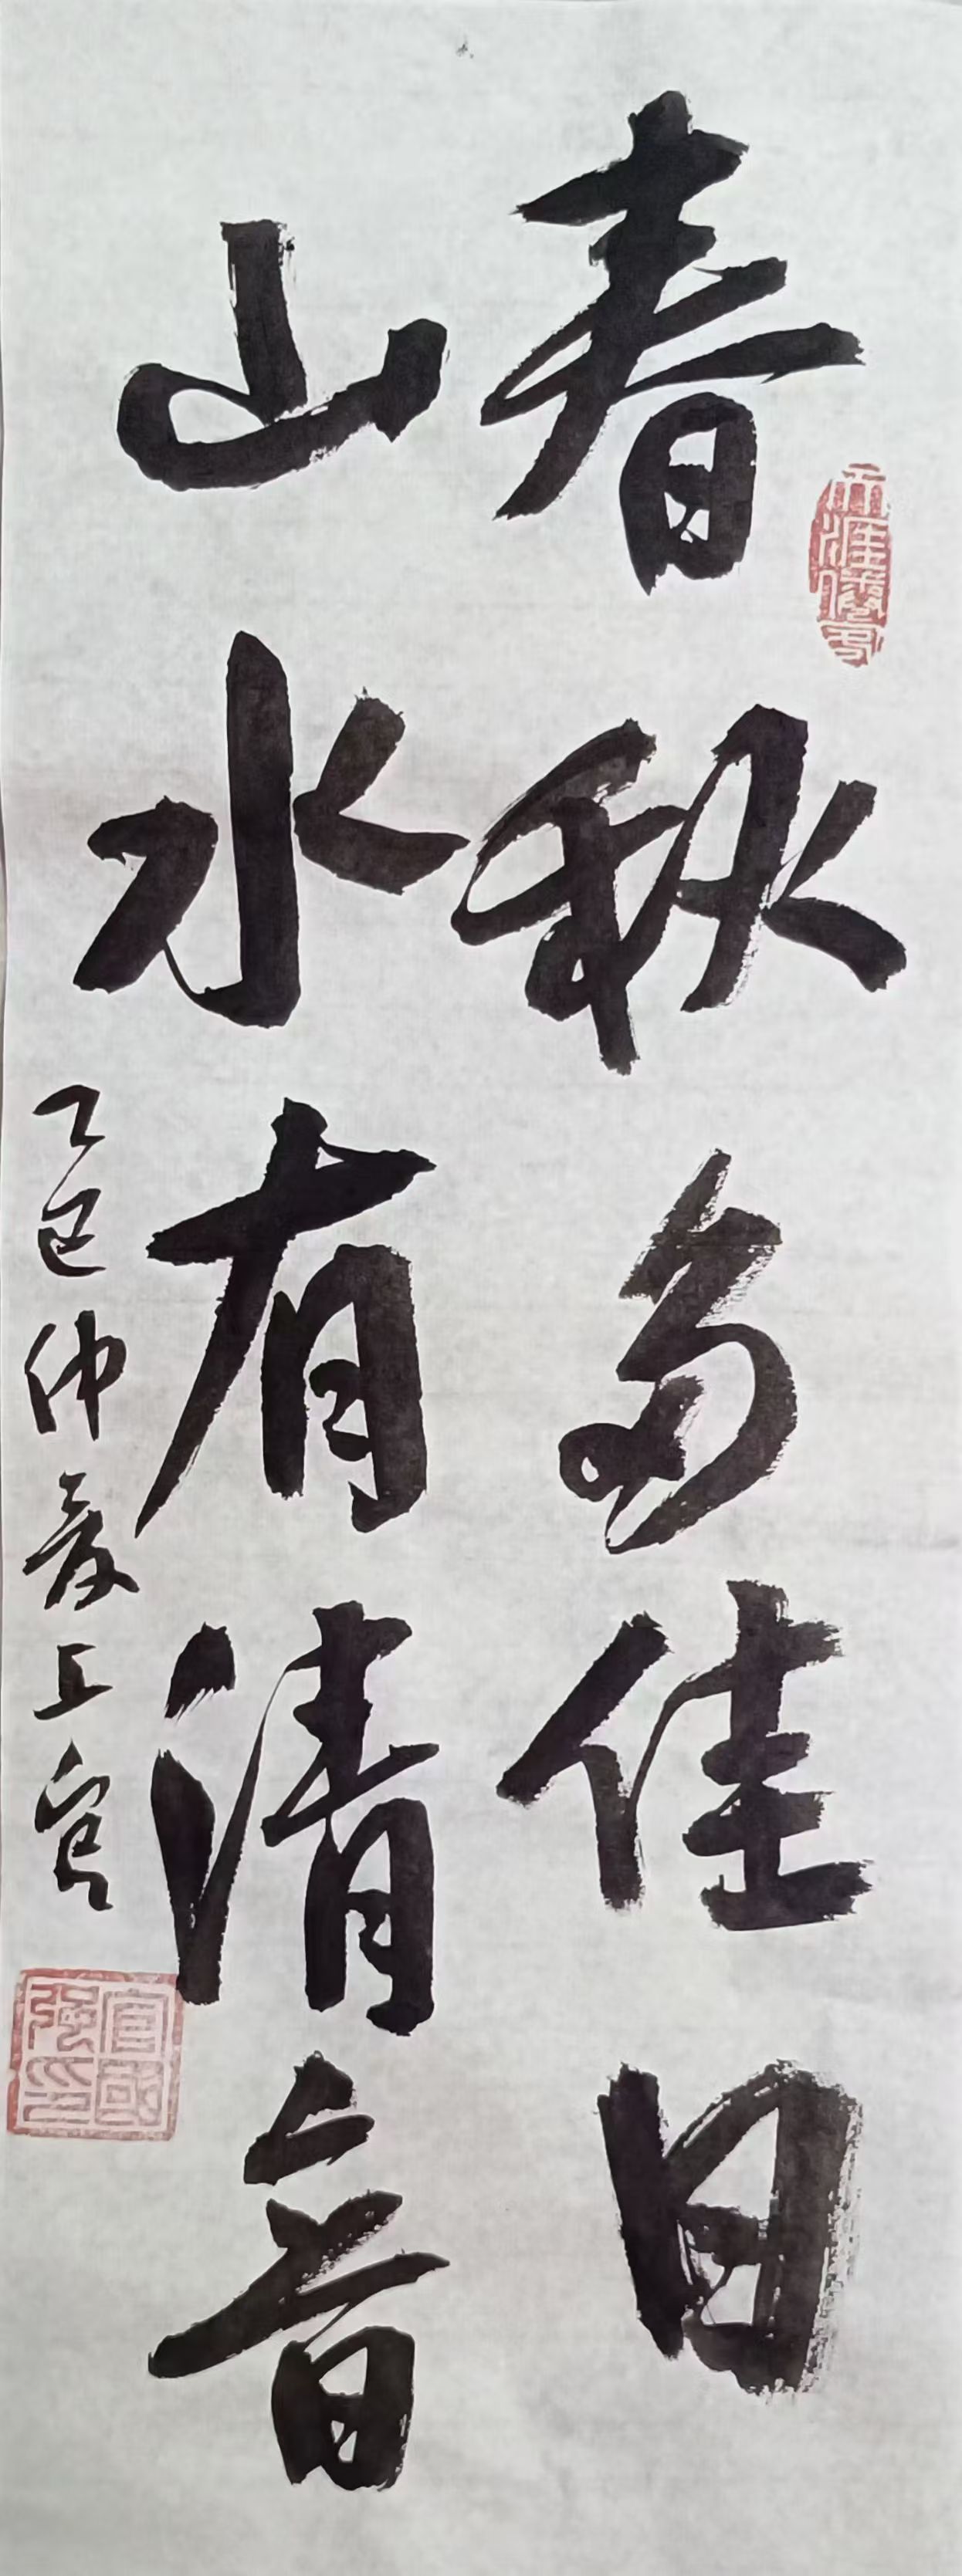 春秋多佳日
山水有清音
乙巳仲夏上官